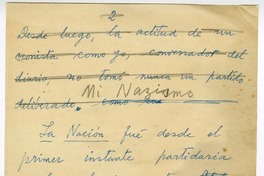 2
Desde luego, la actitud de un
cronista como yo, conversador del
diario, no tomó nunca un partido
deliberado. como
Mi Nazismo
La Nación fué desde el
primer instante partidaria